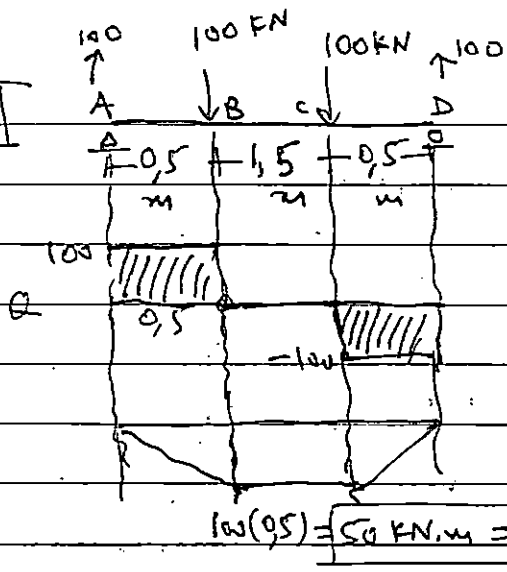 100 100 KN 100KN 100
A B C D
0,5 1,5 0,5
m m m
100
Q
0,5
-100
100(0,5) = 50 KN.m =